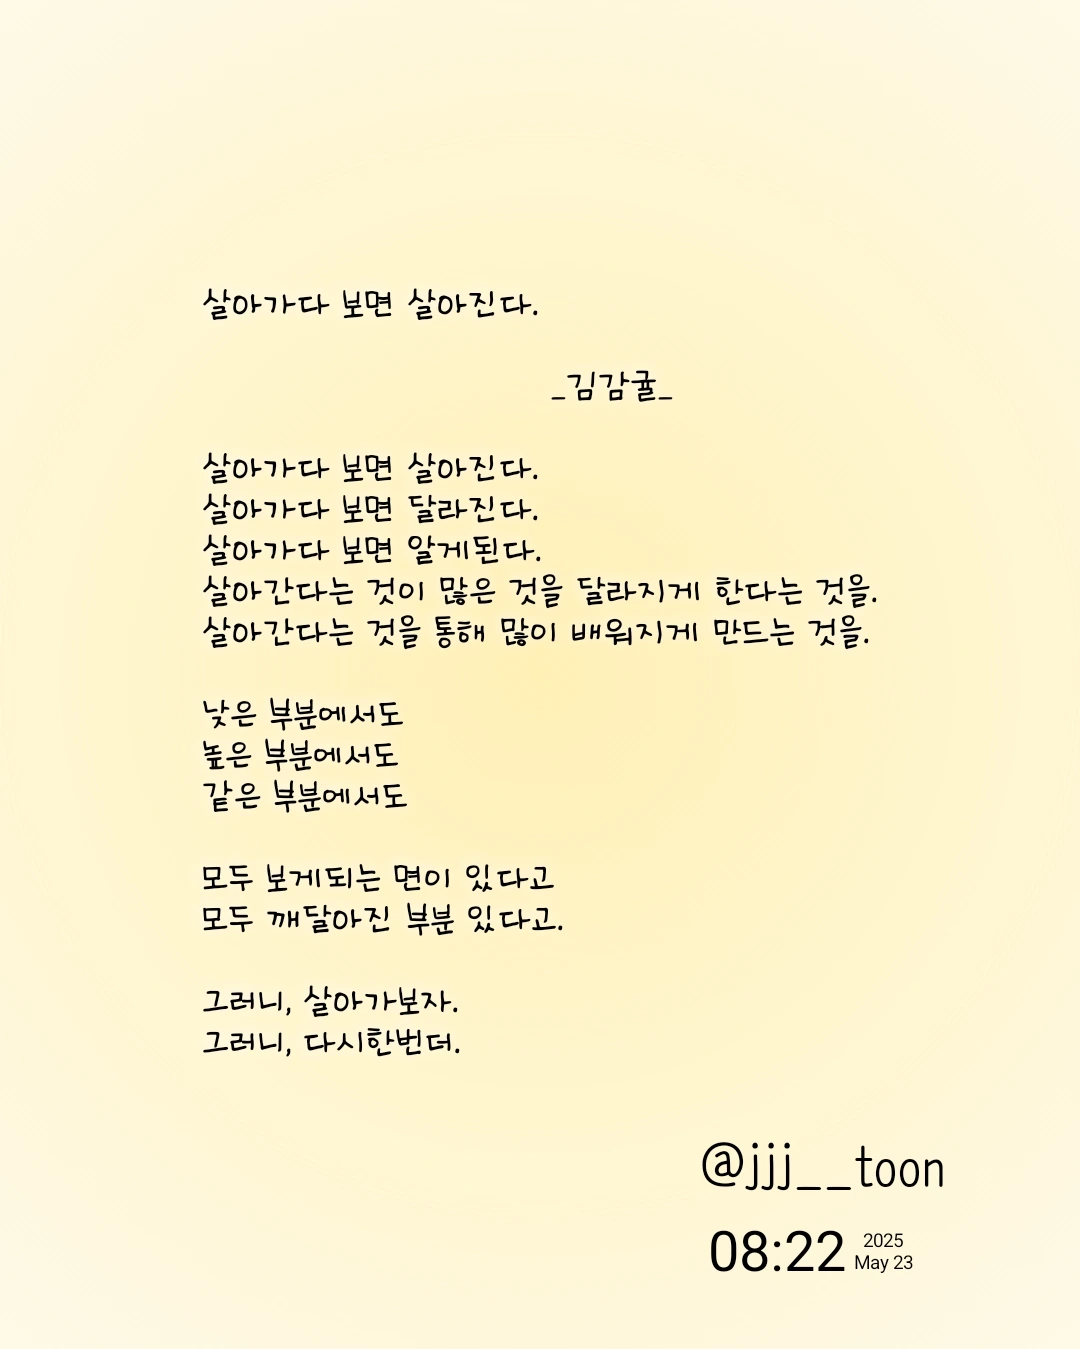 살아가다 보면 살아진다.
_김감귤_
살아가다 보면 살아진다.
살아가다 보면 달라진다.
살아가다 보면 알게된다.
살아간다는 것이 많은 것을 달라지게 한다는 것을.
살아간다는 것을 통해 많이 배워지게 만드는 것을.
낮은 부분에서도
높은 부분에서도
같은 부분에서도
모두 보게되는 면이 있다고
모두 깨달아진 부분 있다고.
그러니, 살아가보자.
그러니, 다시한번더.
@jjj__toon
08:22 2025
May 23